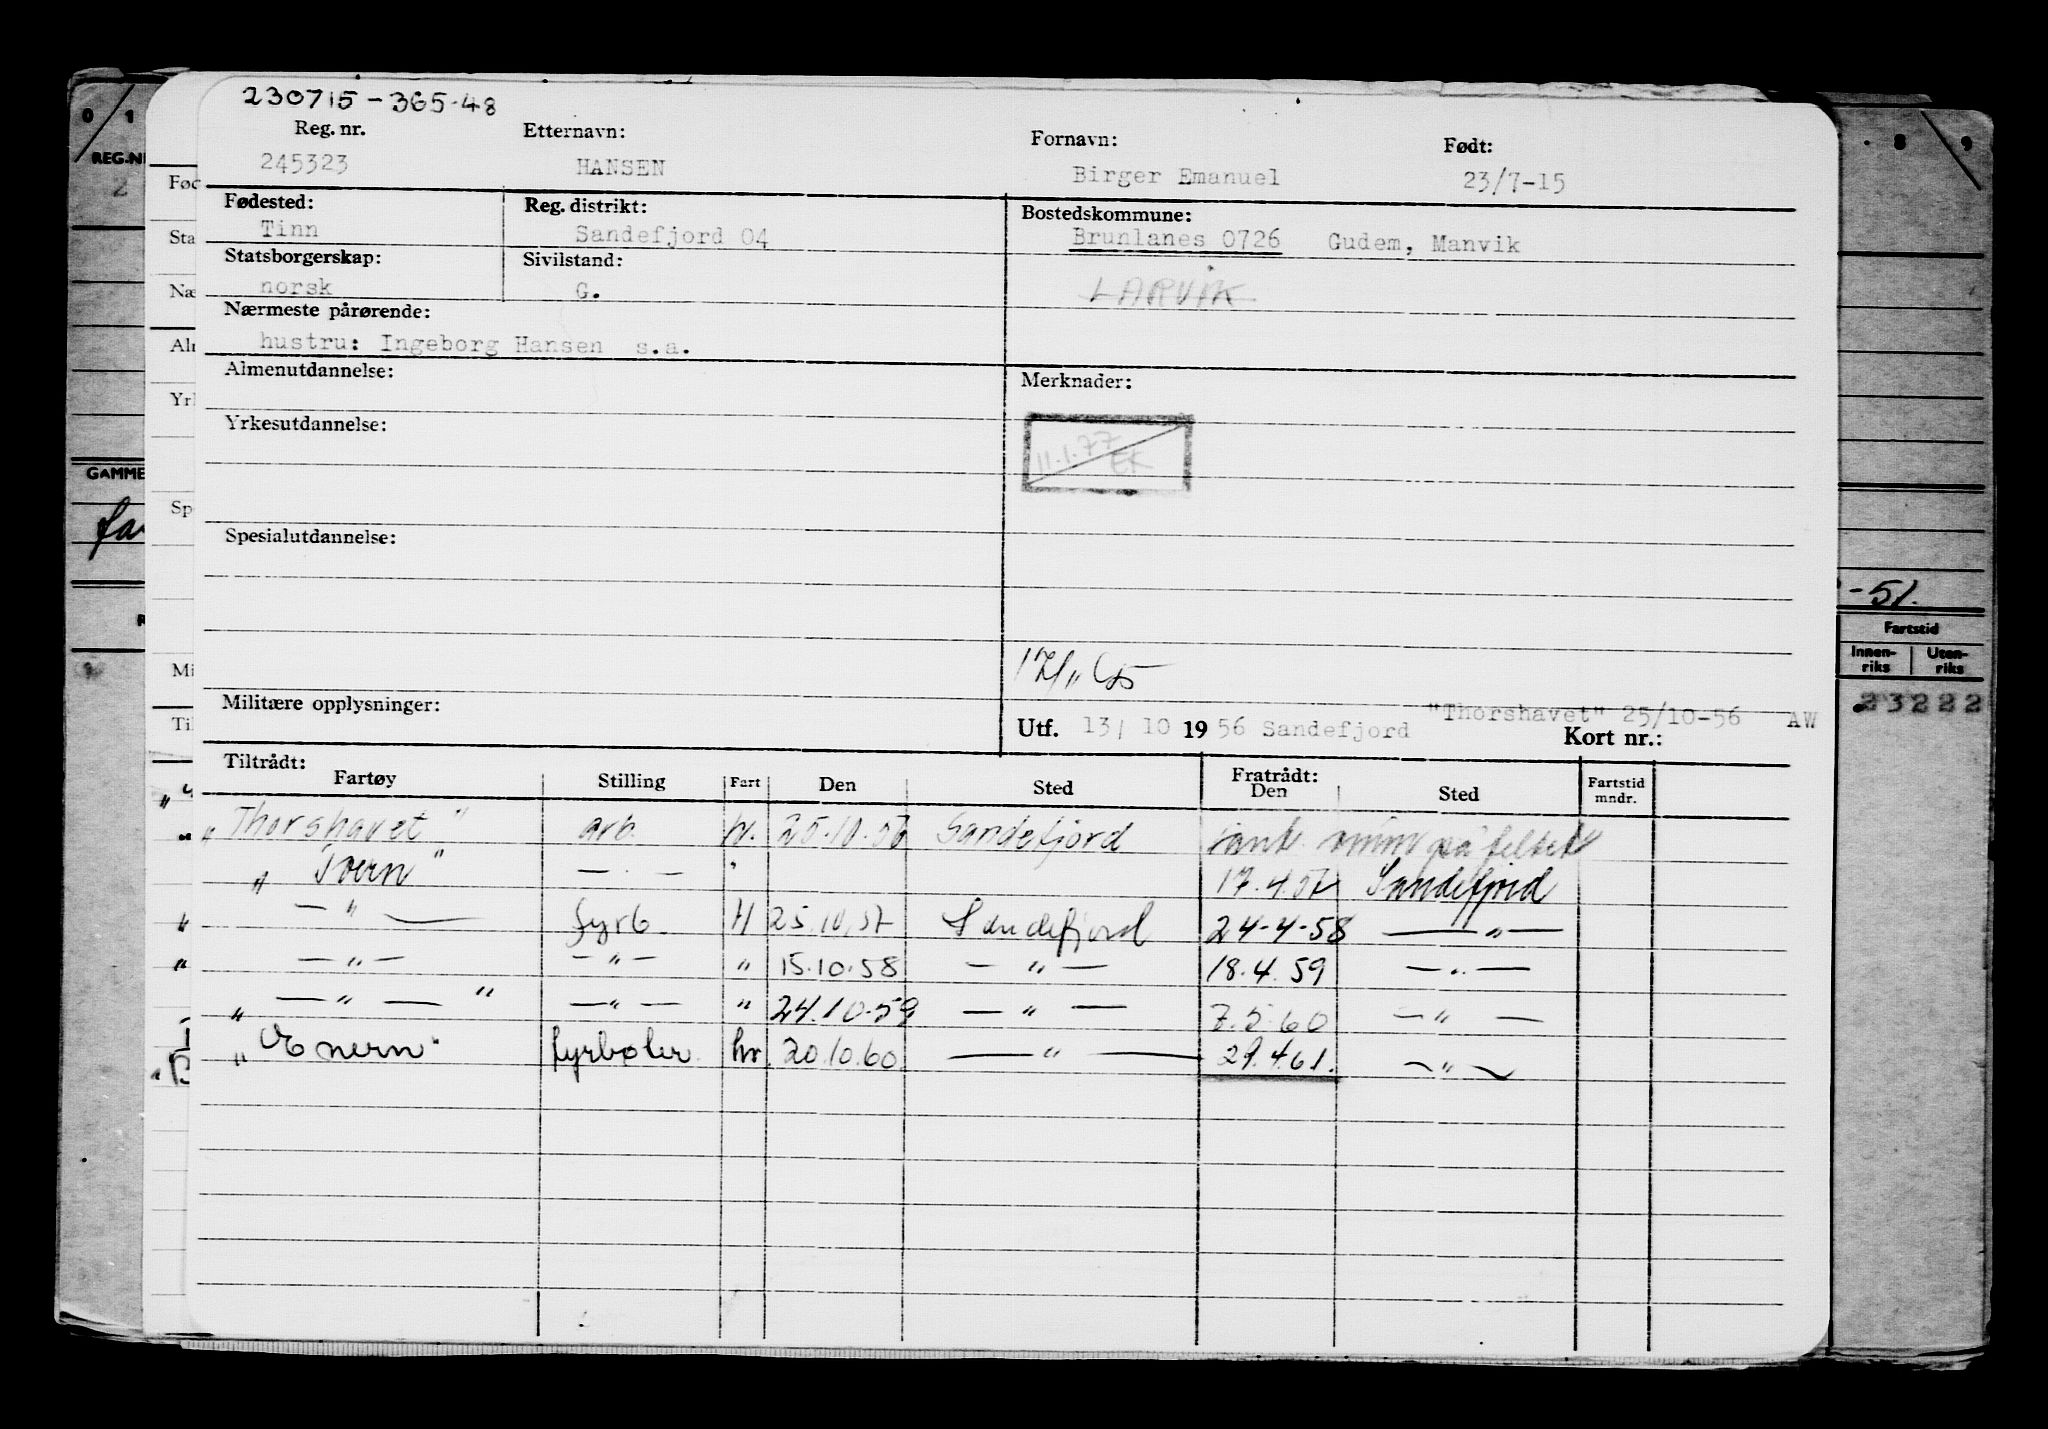 230715-365-48
Reg. nr. Etternavn: Fornavn: Født:
245323 HANSEN Birger Emanuel 23/7-15
Fødested: Reg. distrikt: Bostedskommune:
Tinn Sandefjord 04 Brunlanes 0726 Gudem, Manvik
Statsborgerskap: Sivilstand:
norsk G. LARVIK
Nærmeste pårørende:
hustru: Ingeborg Hansen s.a.
Almenutdannelse: Merknader:
Yrkesutdannelse:
11.1.77
EK
Spesialutdannelse:
Militære opplysninger:
"Thorshavet" 25/10-56 AW
Utf. 13/ 10 1956 Sandefjord Kort nr.:
Tiltrådt: Fratrådt:
Fartøy Stilling Fart Den Sted Den Sted Fartstid mndr.
"Thorshavet" arb. h. 25.10.56 Sandefjord på feltet
" " — . — " 17.4.57 Sandefjord
" — " — fyrb. H 25.10.57 Sandefjord 24-4-58 — " —
" — " — — " — " 15.10.58 — " — 18.4.59 — " —
" — " — " — " — " 24.10.59 — " — 7.5.60 — " —
" " fyrbøter. hv. 20.10.60 — " — 29.4.61. — " —
0 1
REG.N
2
GAMME
Fød
Sta
Næ
Alr
Yrk
Sp
Mi
Til
8 9
-51.
Fartstid
Innen-riks Uten-riks
23222